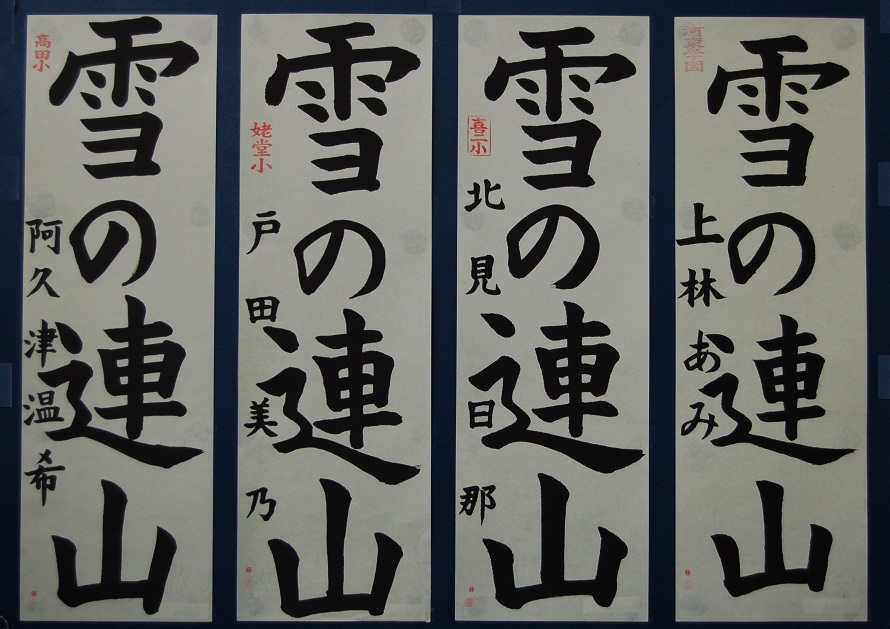 雪の連山
高田小
阿久津温希
雪の連山
姥堂小
戸田美乃
雪の連山
喜二小
北見日那
雪の連山
河東学園
上林あみ